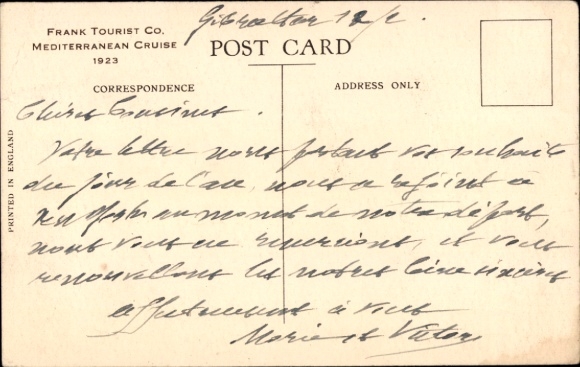 Gibraltar 12/2.
FRANK TOURIST CO.
MEDITERRANEAN CRUISE
1923
POST CARD
CORRESPONDENCE
ADDRESS ONLY
PRINTED IN ENGLAND
Chères Cousines.
Votre lettre nous portant vos souhaits
du jour de l'an, nous a rejoint à
New York au moment de notre départ,
nous vous en remercions, et vous
renouvellons les nôtres bien sincères
affectueusement à vous
Marie et Victor